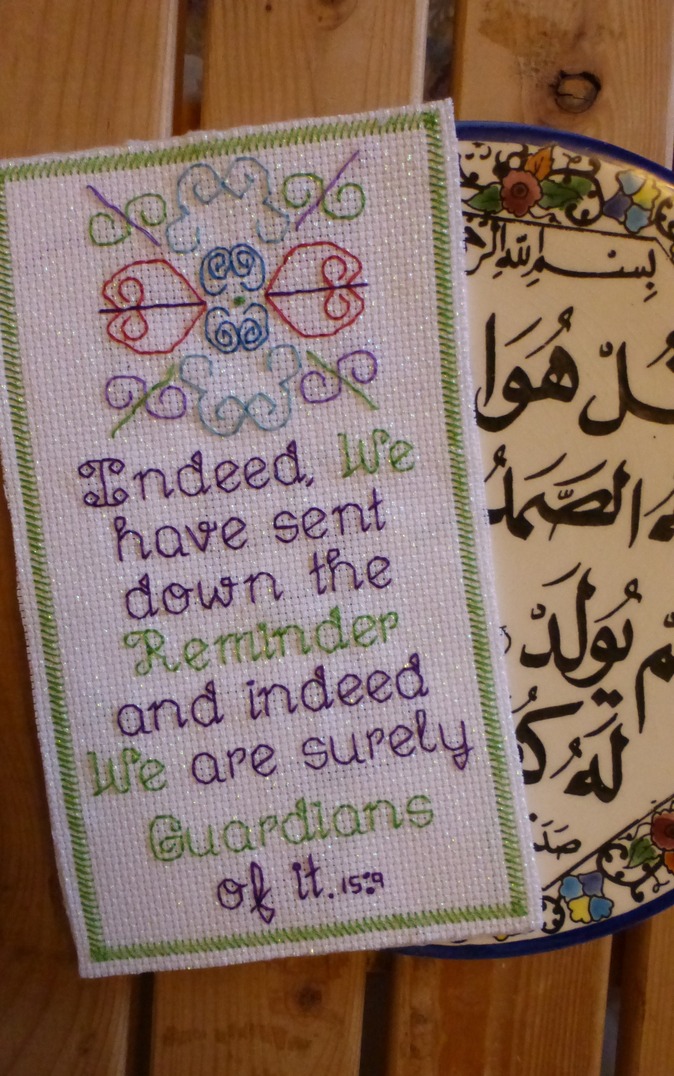 Indeed, We
have sent
down the
Reminder
and indeed
We are surely
Guardians
of it. 15:9
بِسْمِ اللهِ
قُلْ هُوَ
الصَّمَدُ
يُولَدْ
لَهُ